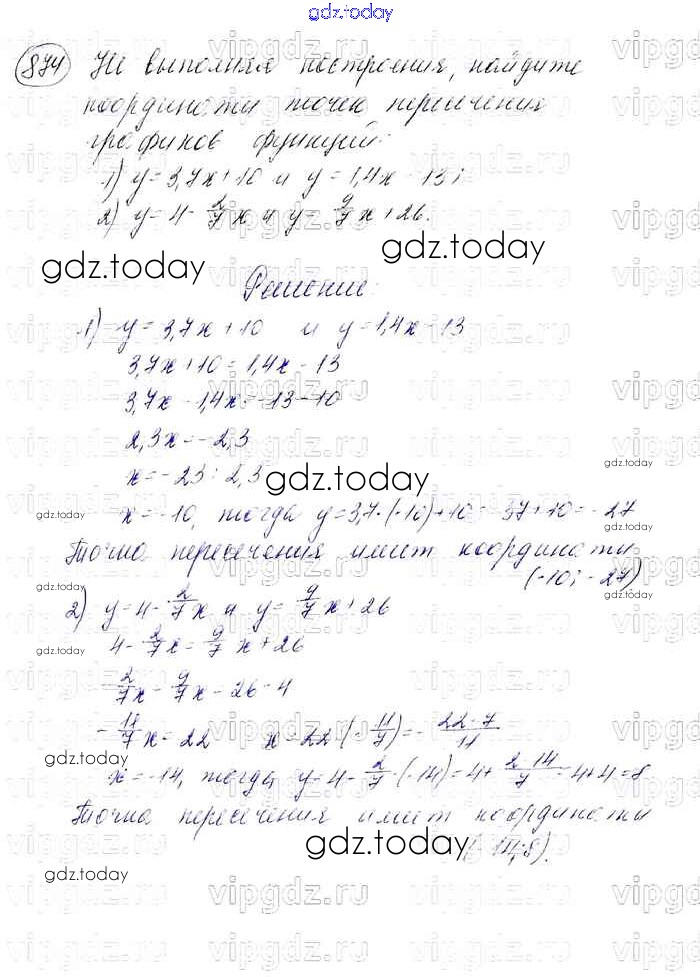 gdz.today
874 Не выполняя построения, найдите
координаты точек пересечения
графиков функций:
1) y=3,7x+10 и y=1,4x-13;
2) y=4-2/7x и y=9/7x+26.
gdz.today
gdz.today
Решение:
1) y=3,7x+10 и y=1,4x-13
3,7x+10=1,4x-13
3,7x-1,4x=-13-10
2,3x=-2,3
x=-23:2,3
gdz.today
x=-10, тогда y=3,7·(-10)+10=-37+10=-27
gdz.today
gdz.today
Точка пересечения имеет координаты
(-10;-27)
2) y=4-2/7x и y=9/7x+26
4-2/7x=9/7x+26
gdz.today
gdz.today
-2/7x-9/7x=26-4
-11/7x=22 x=22:(-11/7)=-22·7/11
gdz.today
gdz.today
x=-14, тогда y=4-2/7·(-14)=4+2·14/7=4+4=8
Точка пересечения имеет координаты
(-14;8).
gdz.today
gdz.today
vipgdz.ru